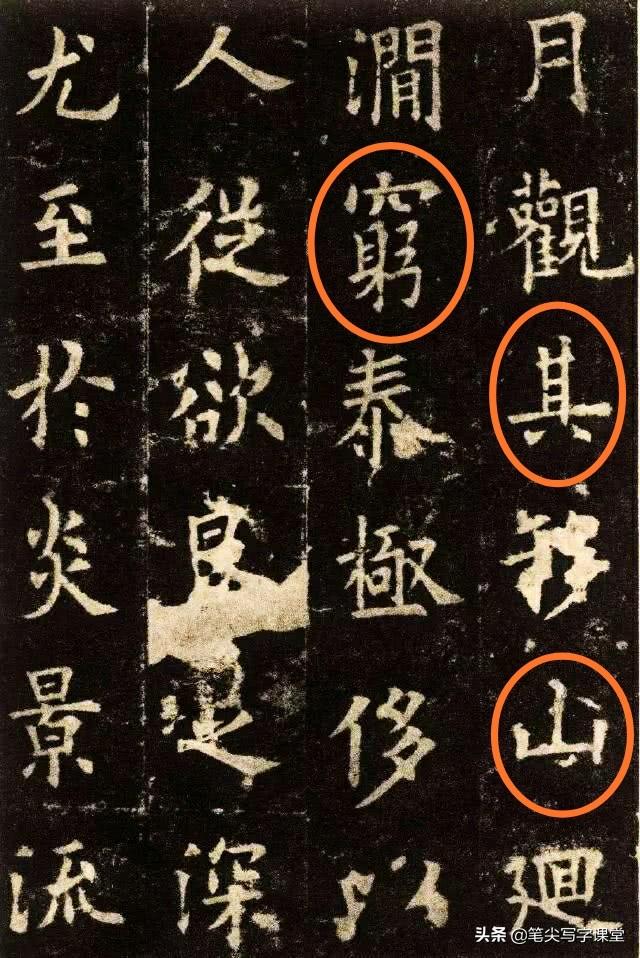 月觀其移山廻
澗窮泰極侈以
人從欲良足深
尤至於炎景流
头条 @笔尖写字课堂